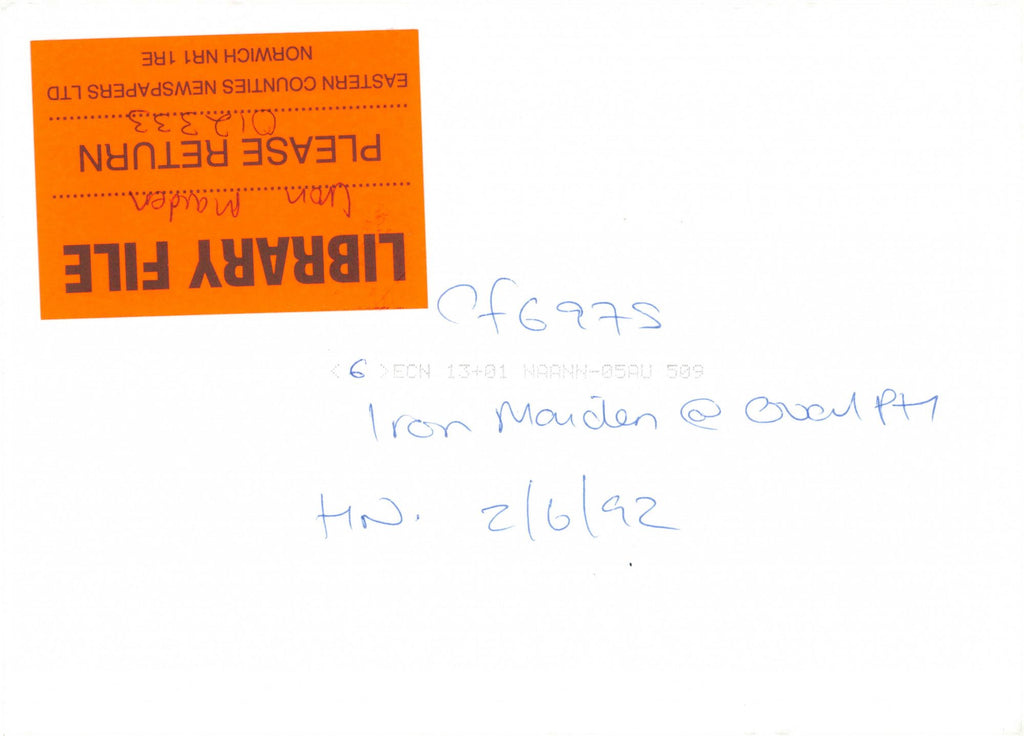 LIBRARY FILE
Iron Maiden
PLEASE RETURN
012333
EASTERN COUNTIES NEWSPAPERS LTD
NORWICH NR1 1RE
Cf6975
<6>ECN 13+01 NAANN-05AU 509
Iron Maiden @ Oval PH
HN. 2/6/92